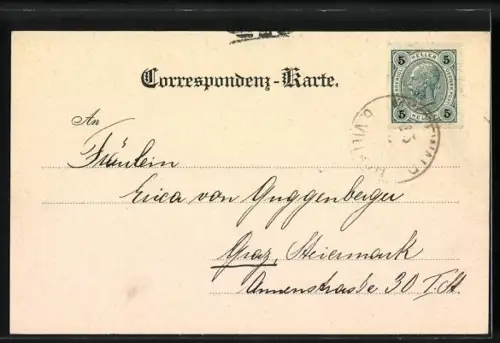 Correspondenz-Karte.
5 HELLER 5
5 HELLER 5
An
Fräulein
Erica von Guggenberger
Graz, Steiermark
Annenstrasse 30 I. St.